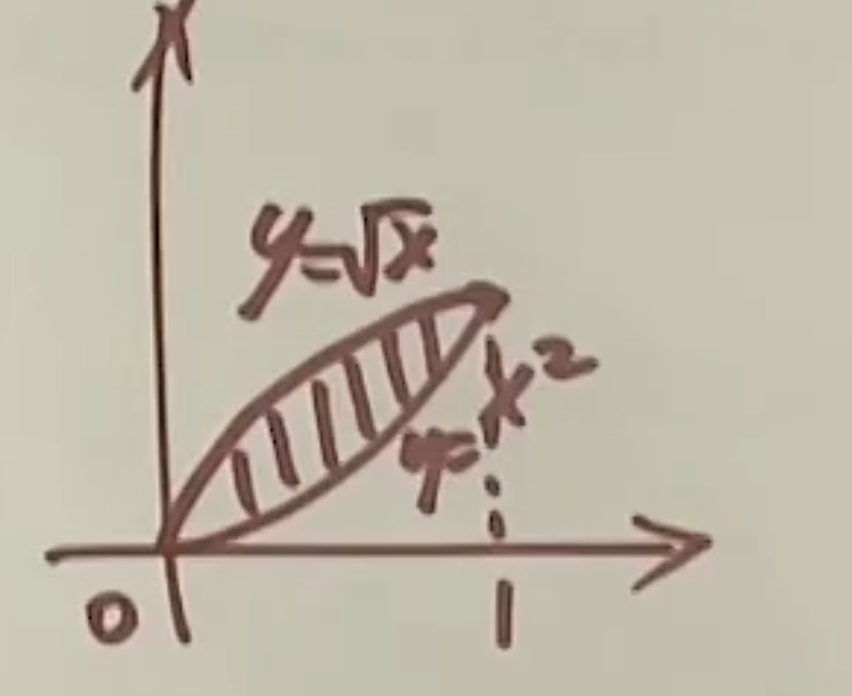 y=√x
y=x²
0
1